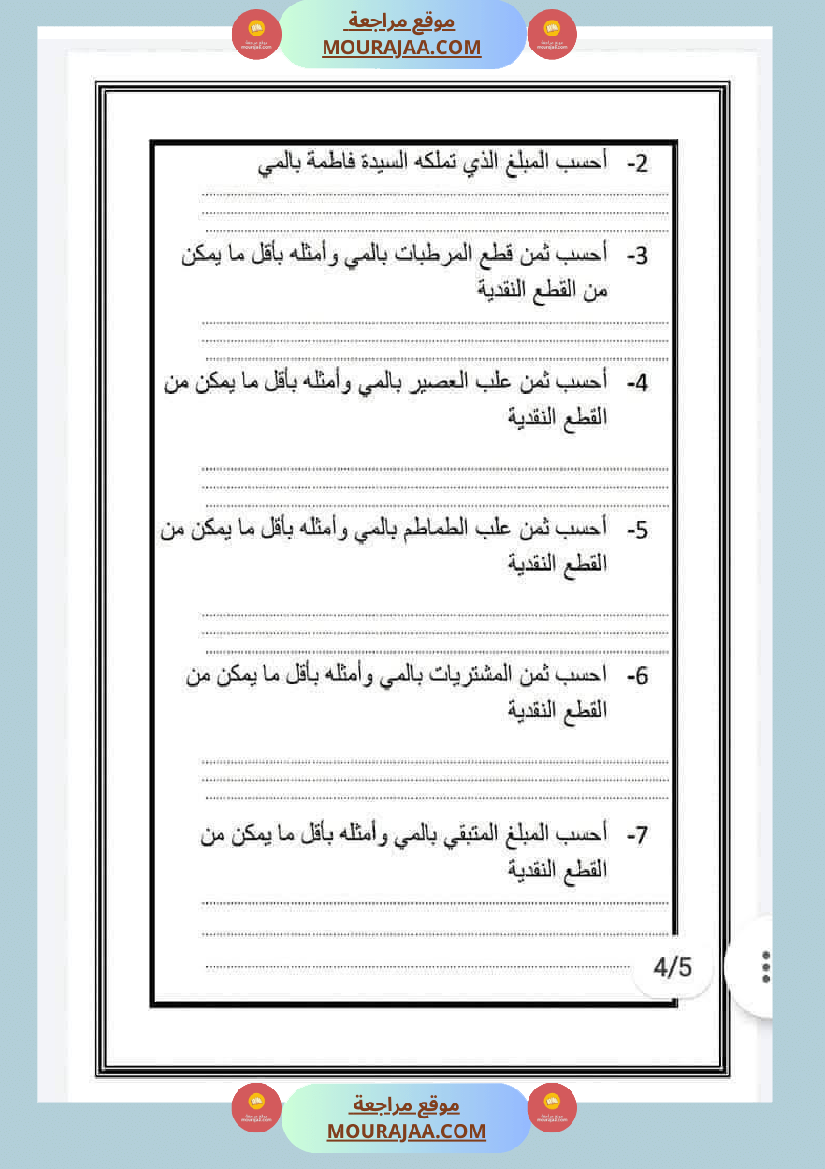 موقع مراجعة
MOURAJAA.COM
2- أحسب المبلغ الذي تملكه السيدة فاطمة بالمي
3- أحسب ثمن قطع المرطبات بالمي وأمثله بأقل ما يمكن
من القطع النقدية
4- أحسب ثمن علب العصير بالمي وأمثله بأقل ما يمكن من
القطع النقدية
5- أحسب ثمن علب الطماطم بالمي وأمثله بأقل ما يمكن من
القطع النقدية
6- احسب ثمن المشتريات بالمي وأمثله بأقل ما يمكن من
القطع النقدية
7- أحسب المبلغ المتبقي بالمي وأمثله بأقل ما يمكن من
القطع النقدية
4/5
موقع مراجعة
MOURAJAA.COM